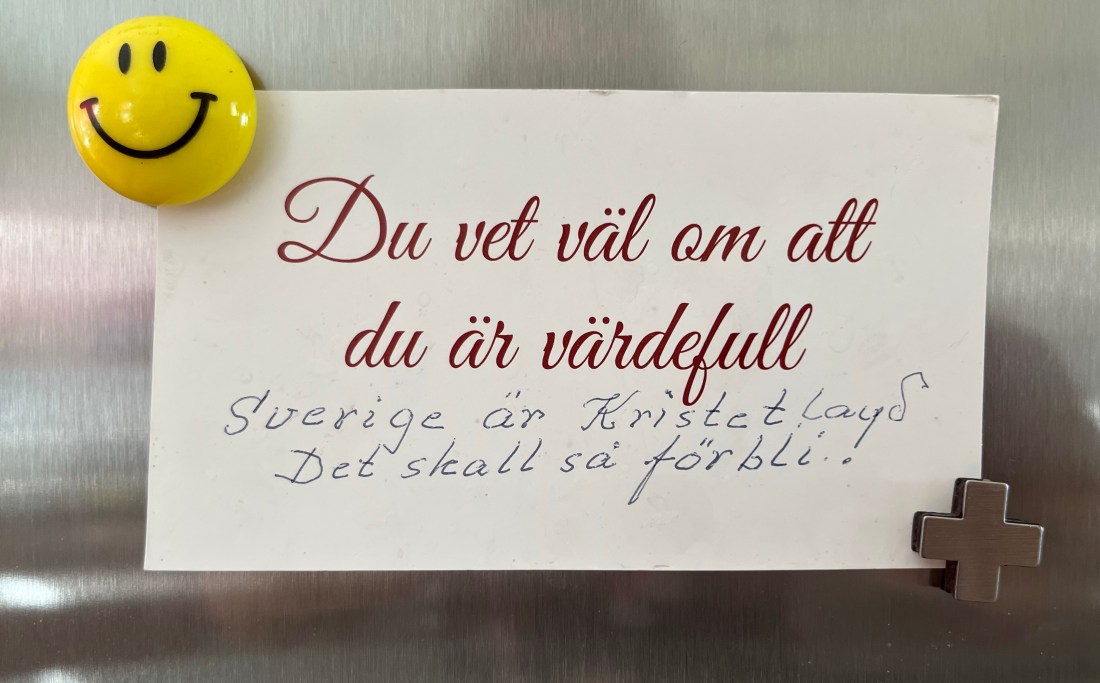 Du vet väl om att
du är värdefull
Sverige är Kristet land
Det skall så förbli..